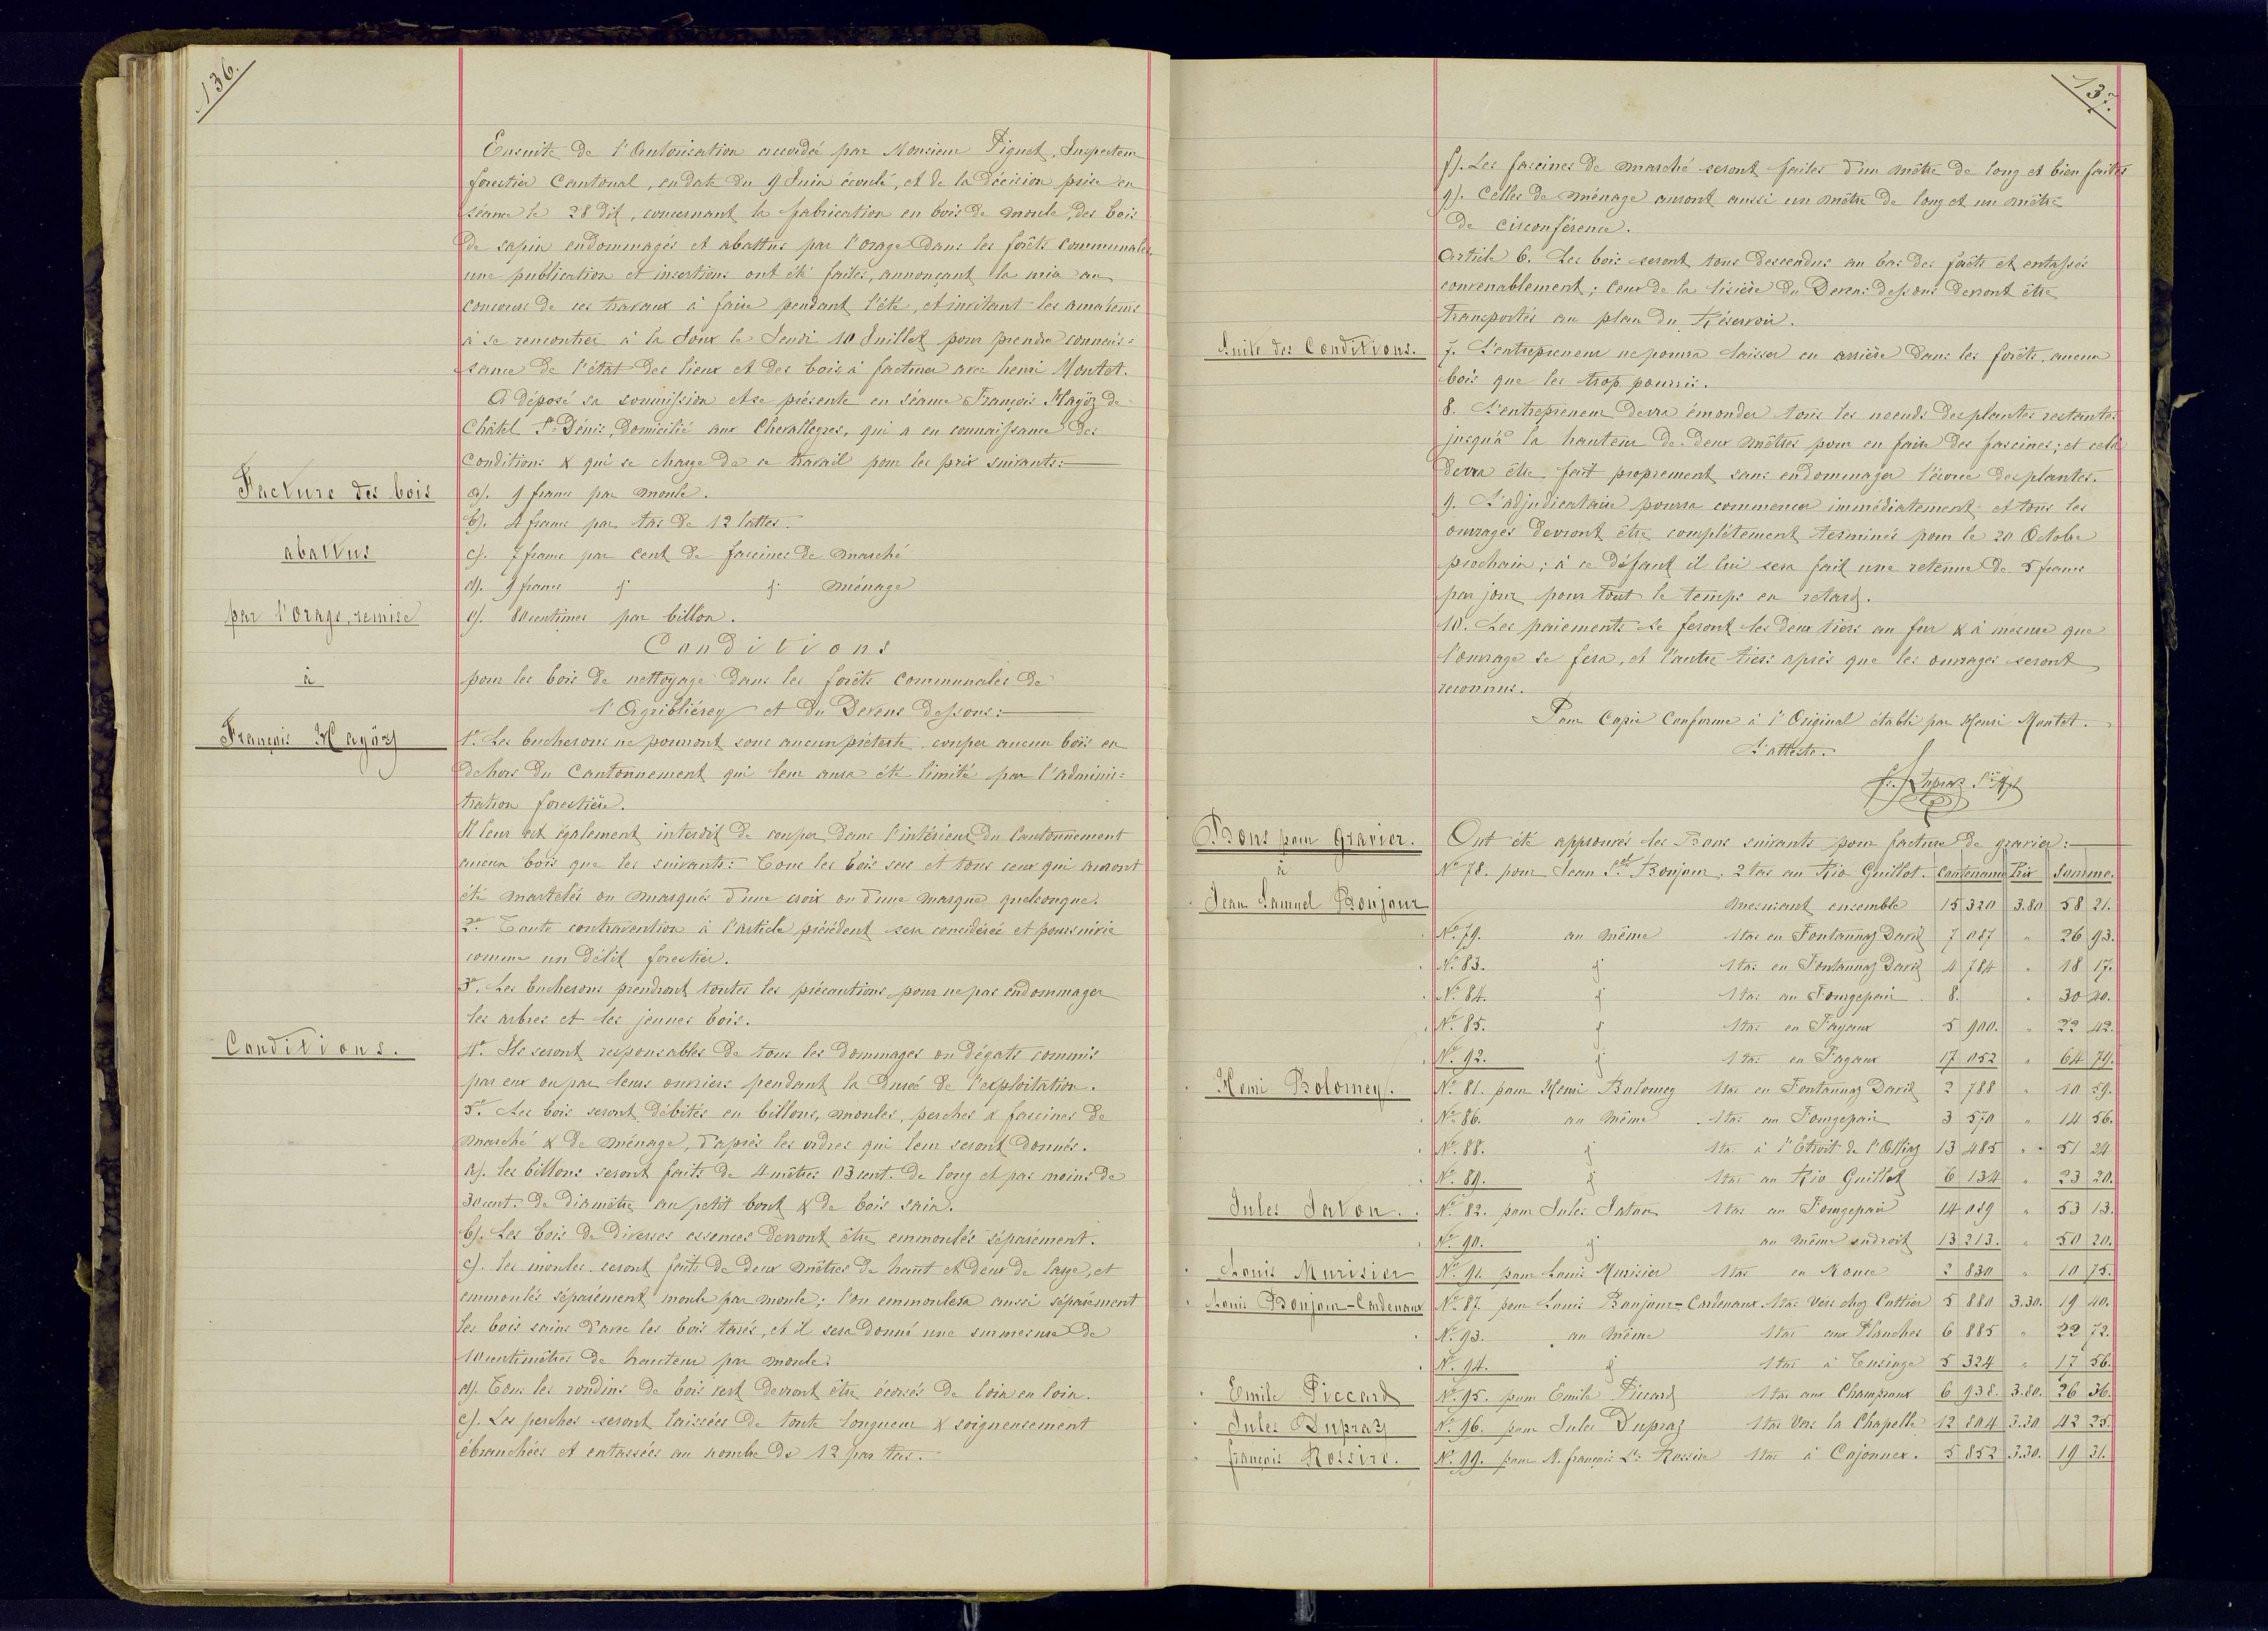 136.
Ensuite de l'Autorisation accordée par Monsieur Piguet, Inspecteur
forestier Cantonal, en date du 9 Juin écoulé, et de la décision prise en
séance le 28 dit, concernant la fabrication en bois de moule, des bois
de sapin endommagés et abattus par l'orage dans les forêts communales,
une publication et insertions ont été faites, annonçant la mise au
concours de ces travaux à faire pendant l'été, et invitant les amateurs
à se rencontrer à la Joux le Jeudi 10 Juillet pour prendre connais:
sance de l'état des lieux et des bois à facturer avec henri Montet.
A déposé sa soumission et se présente en séance François Hayoz de
Châtel St Dénis, domicilié aux Chevalleyres, qui a eu connaissance des
conditions & qui se charge de ce travail pour les prix suivants:
Facture des bois
abattus
par l'Orage, remise
à
François Hayoz
a). 9 francs par moule.
b). 4 francs par tas de 12 lattes.
c). 7 francs par cent de fascines de marché
d). 9 francs " " ménage
e). 80 centimes par billon.
Conditions
pour les bois de nettoyage dans les forêts communales de
l'Agribliérey et du Devens dessous:
1o. Les bucherons ne pourront sous aucun prétexte couper aucun bois en
dehors du Cantonnement qui leur aura été limité par l'adminis:
tration forestière.
Il leur est également interdit de couper dans l'intérieur du Cantonnement
aucun bois que les suivants: Tous les bois secs et tous ceux qui auront
été martelés ou marqués d'une croix ou d'une marque quelconque.
2o. Toute contravention à l'article précédent sera considérée et poursuivie
comme un délit forestier.
3o. Les bucherons prendront toutes les précautions pour ne pas endommager
les arbres et les jeunes bois.
Conditions.
4o. Ils seront responsables de tous les dommages ou dégats commis
par eux ou par leurs ouvriers pendant la durée de l'exploitation.
5o. Les bois seront débités en billons, moules, perches & fascines de
marché & de ménage, d'après les ordres qui leur seront donnés.
a). les billons seront faits de 4 mètres 03 cent. de long et pas moins de
30 cent. de diamètre au petit bout & de bois sain.
b). Les bois de diverses essences devront être enmoulés séparément.
c). les moules seront faits de deux mètres de haut et deux de large, et
enmoulés séparément moule par moule; l'on enmoulera aussi séparément
les bois sains d'avec les bois tarés, et il sera donné une surmesure de
10 centimètres de hauteur par moule.
d). Tous les rondins de bois vert devront être écorcés de loin en loin.
e). Les perches seront laissées de toute longueur & soigneusement
ébranchées et entassées au nombre de 12 par tas.
137.
f). Les fascines de marché seront faites d'un mètre de long et bien faites
g). Celles de ménage auront aussi un mètre de long et un mètre
de circonférence.
Article 6. Les bois seront tous descendus au bas des forêts et entassés
convenablement; ceux de la lisière du Devens dessous devront être
transportés au plan du Réservoir.
Suite des Conditions.
7. L'entrepreneur ne pourra laisser en arrière dans les forêts, aucun
bois que les trop pourris.
8. L'entrepreneur devra émonder tous les noeuds des plantes restantes
jusqu'à la hauteur de deux mètres pour en faire des fascines; et cela
devra être fait proprement sans endommager l'écorce des plantes.
9. L'adjudicataire pourra commencer immédiatement et tous les
ouvrages devront être complétement terminés pour le 20 Octobre
prochain; à ce défaut il lui sera fait une retenue de 5 francs
par jour pour tout le temps en retard.
10. Les paiements se feront les deux tiers au fur & à mesure que
l'ouvrage se fera, et l'autre tiers après que les ouvrages seront
reconnus.
Pour Copie Conforme à l'Original établi par Henri Montet.
L'atteste.
Bons pour Gravier.
à
Jean Samuel Bonjour
Ont été approuvés les Bons suivants pour facture de gravier:
No 78. pour Jean Sel Bonjour, 2 tas au Rio Guillot. Contenance Prix Somme.
mesurant ensemble 15 320 3.80 58 21.
No 79. au même 1 tas en Fontannaz David 7 087 " 26 93.
No 83. " 1 tas en Fontannaz David 4 784 " 18 17.
No 84. " 1 tas au Fourgepain 8. " 30 40.
No 85. " 1 tas en Fayaux 5 900. " 22 42.
No 92. " 1 tas en Fayaux 17 052 " 64 79.
Henri Bolomey.
No 81. pour Henri Bolomey 1 tas en Fontannaz David 2 788 " 10 59.
No 86. au même 1 tas au Fourgepain 3 570 " 14 56.
No 88. " 1 tas à l'Etroit de l' 13 485 " 51 24
No 89. " 1 tas au Rio Guillot 6 134 " 23 20.
Jules Jaton.
No 82. pour Jules Jaton 1 tas au Fourgepain 14 039 " 53 13.
No 90. " au même endroit 13 213. " 50 20.
Louis Murisier
No 91. pour Louis Murisier 1 tas en 2 830 " 10 75.
Louis Bonjour-Cardenaux
No 87. pour Louis Bonjour-Cardenaux. 1 tas Vers chez Cottier 5 880 3.30. 19 40.
No 93. au même 1 tas aux Planches 6 885 " 22 72.
No 94. " 1 tas à Tusinge 5 324 " 17 56.
Emile Piccard
No 95. pour Emile Piccard 1 tas aux Champsaux 6 938. 3.80. 26 36.
Jules Dupraz
No 96. pour Jules Dupraz 1 tas Vers la Chapelle 12 804 3.30 42 25.
françois Rossire.
No 99. pour M. françois Ls Rossire 1 tas à Cojonnex. 5 852 3.30. 19 31.